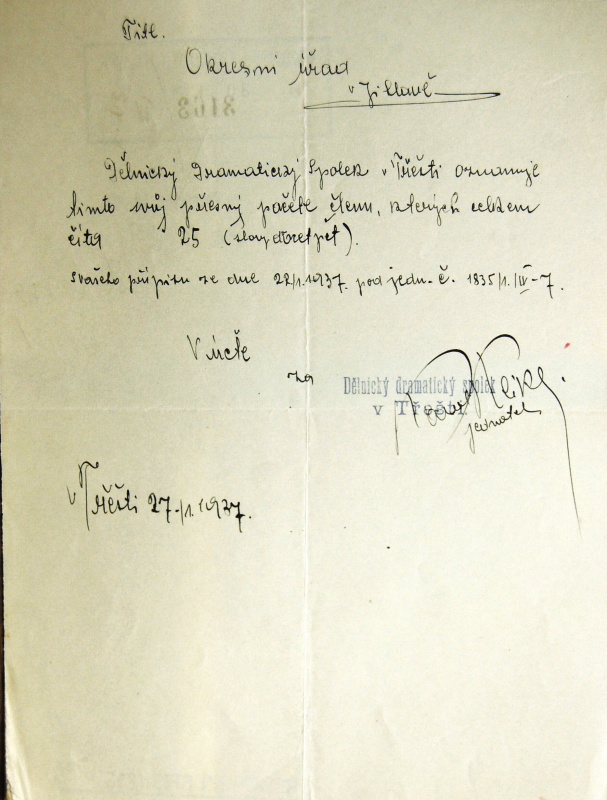 Titl.
Okresní úřad
v Jihlavě
Dělnický Dramatický Spolek v Třešti oznamuje
tímto svůj přesný počet členů, kterých celkem
čítá 25 (slovy dvacetpět).
pod jedn. č. 1835/1./IV-7.
V úctě
za
Dělnický dramatický spolek
v Třešti
jednatel
v Třešti 27./1. 1937.